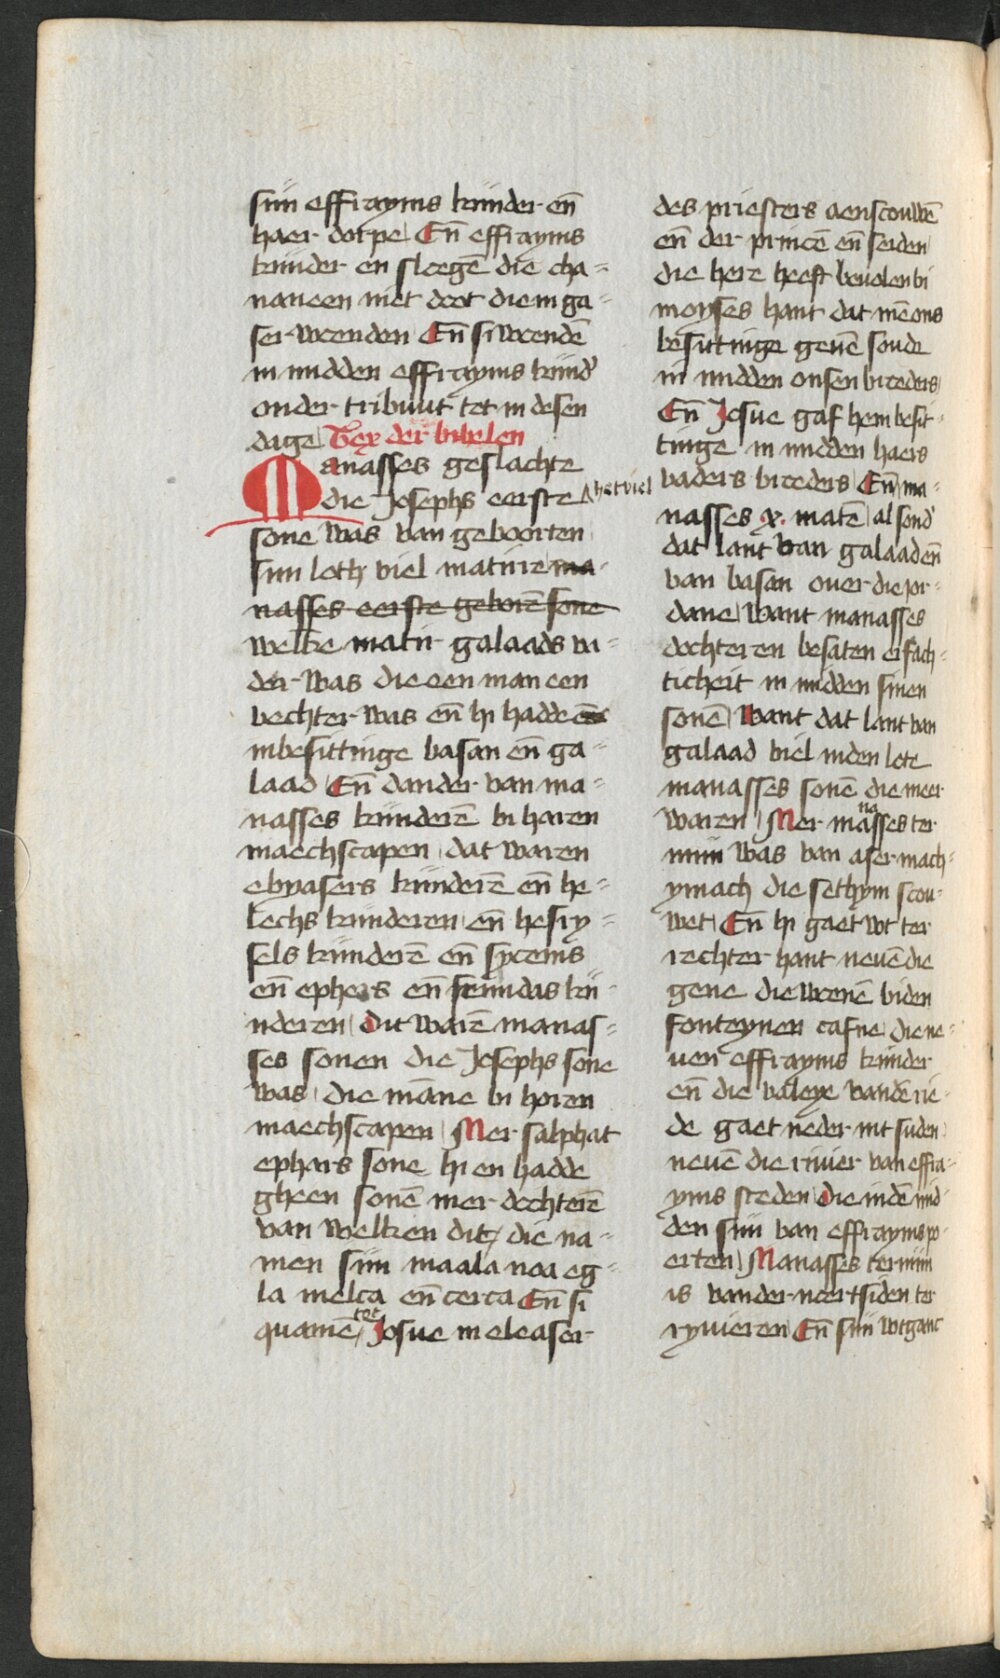 siin effrayms kinder en̄
haer dorpe En̄ effrayms
kinder en sloegē die cha-
naneen niet doot die in ga-
ser woenden En̄ si woendē
in midden effrayms kind'
onder tribuut tot in desen
dage Tex der bibelen
Manasses geslachte
die Josephs eerste het viel
sone was van geboorten
siin loth viel matiire ma-
nasses eerste geborē sone
welke matir galaads va-
der was die een man een
vechter was en̄ hi hadde en̄
in besittinge basan en̄ ga-
laad En̄ dander van ma-
nasses kinderē bi haren
maechscapen dat waren
ebyasers kinderē en̄ he-
lechs kinderen en̄ hesry-
sels kinderē en̄ sycems
en̄ ephers en̄ semidas kii-
nderen Dit warē manas-
ses sonen die Josephs sone
was die māne bi horen
maechscapen Mer salphat
ephars sone hi en hadde
gheen sonē mer dochterē
van welken dit die na-
men siin maala noa eg-
la melca en̄ terca En̄ si
quamē tot Josue in eleaser
des priesters aenscouwē
en̄ der princē en̄ seiden
die here heeft bevolen bi
moyses hant dat mē ons
besittinge gevē soude
in midden onsen broeders
En̄ Josue gaf hem besit-
tinge in midden haers
vaders broeders En̄ ma-
nasses .x. matē al sond'
dat lant van galaad en̄
van basan over die jor-
dane want manasses
dochteren besaten erfach-
ticheit in midden sinen
sonē want dat lant van
galaad viel in den lote
manasses sonē die meer
waren Mer manasses ter-
miin was van aser mach-
ymach die sethym scou-
wet En̄ hi gaet wt ter
rechter hant nevē die
gene die woenē bi den
fonteynen tafne die ne-
ven effrayms kinder
en̄ die valeye vandē rie-
de gaet neder int suden
nevē die rivier van effra-
yms steden Die in dē mid-
den siin van effrayms po-
erten Manasses termiin
is vander noertsiden ter
ryvieren En̄ siin wtganc